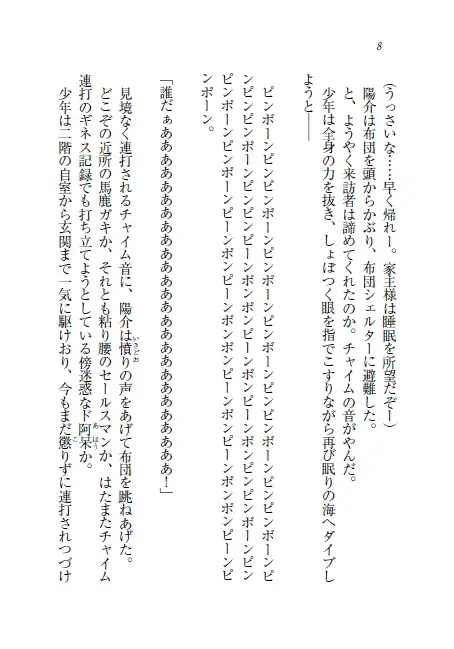 8
(うっさいな……早く帰れー。家主様は睡眠を所望だぞー)
陽介は布団を頭からかぶり、布団シェルターに避難した。
と、ようやく来訪者は諦めてくれたのか。チャイムの音がやんだ。
少年は全身の力を抜き、しょぼつく眼を指でこすりながら再び眠りの海へダイブし
ようと――
ピンポーンピンピンポーンピンポーンピンポーンピンピンポーンピンピンポーンピ
ンピンピンポーンピンポーンピンポーンピーンポンピーンポンピンピンポーンピン
ピンポーンピンポーンピーンポンピーンポンピーンポンピーンポンポンピーンピ
ンポーン。
「誰だぁあああああああああああああああああああああああ！」
見境なく連打されるチャイム音に、陽介は憤りの声をあげて布団を跳ねあげた。
どこぞの近所の馬鹿ガキか、それとも粘り腰のセールスマンか、はたまたチャイム
連打のギネス記録でも打ち立てようとしている傍迷惑なド阿呆か。
少年は二階の自室から玄関まで一気に駆けおり、今もまだ懲りずに連打されつづけ